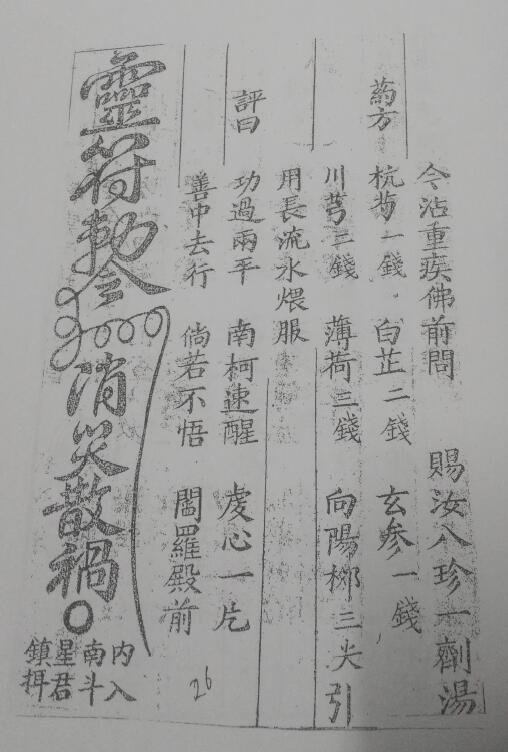 今沾重疾佛前問 賜汝八珍一劑湯
药方 杭芍一錢 白芷二錢 玄参一錢
川芎三錢 薄荷三錢 向陽柳三尖引
用長流水煨服
評曰 功過兩平 南柯速醒 虔心一片
善中去行 倘若不悟 閻羅殿前
靈符勅令消災散禍
内入
南斗
星君
鎮
26